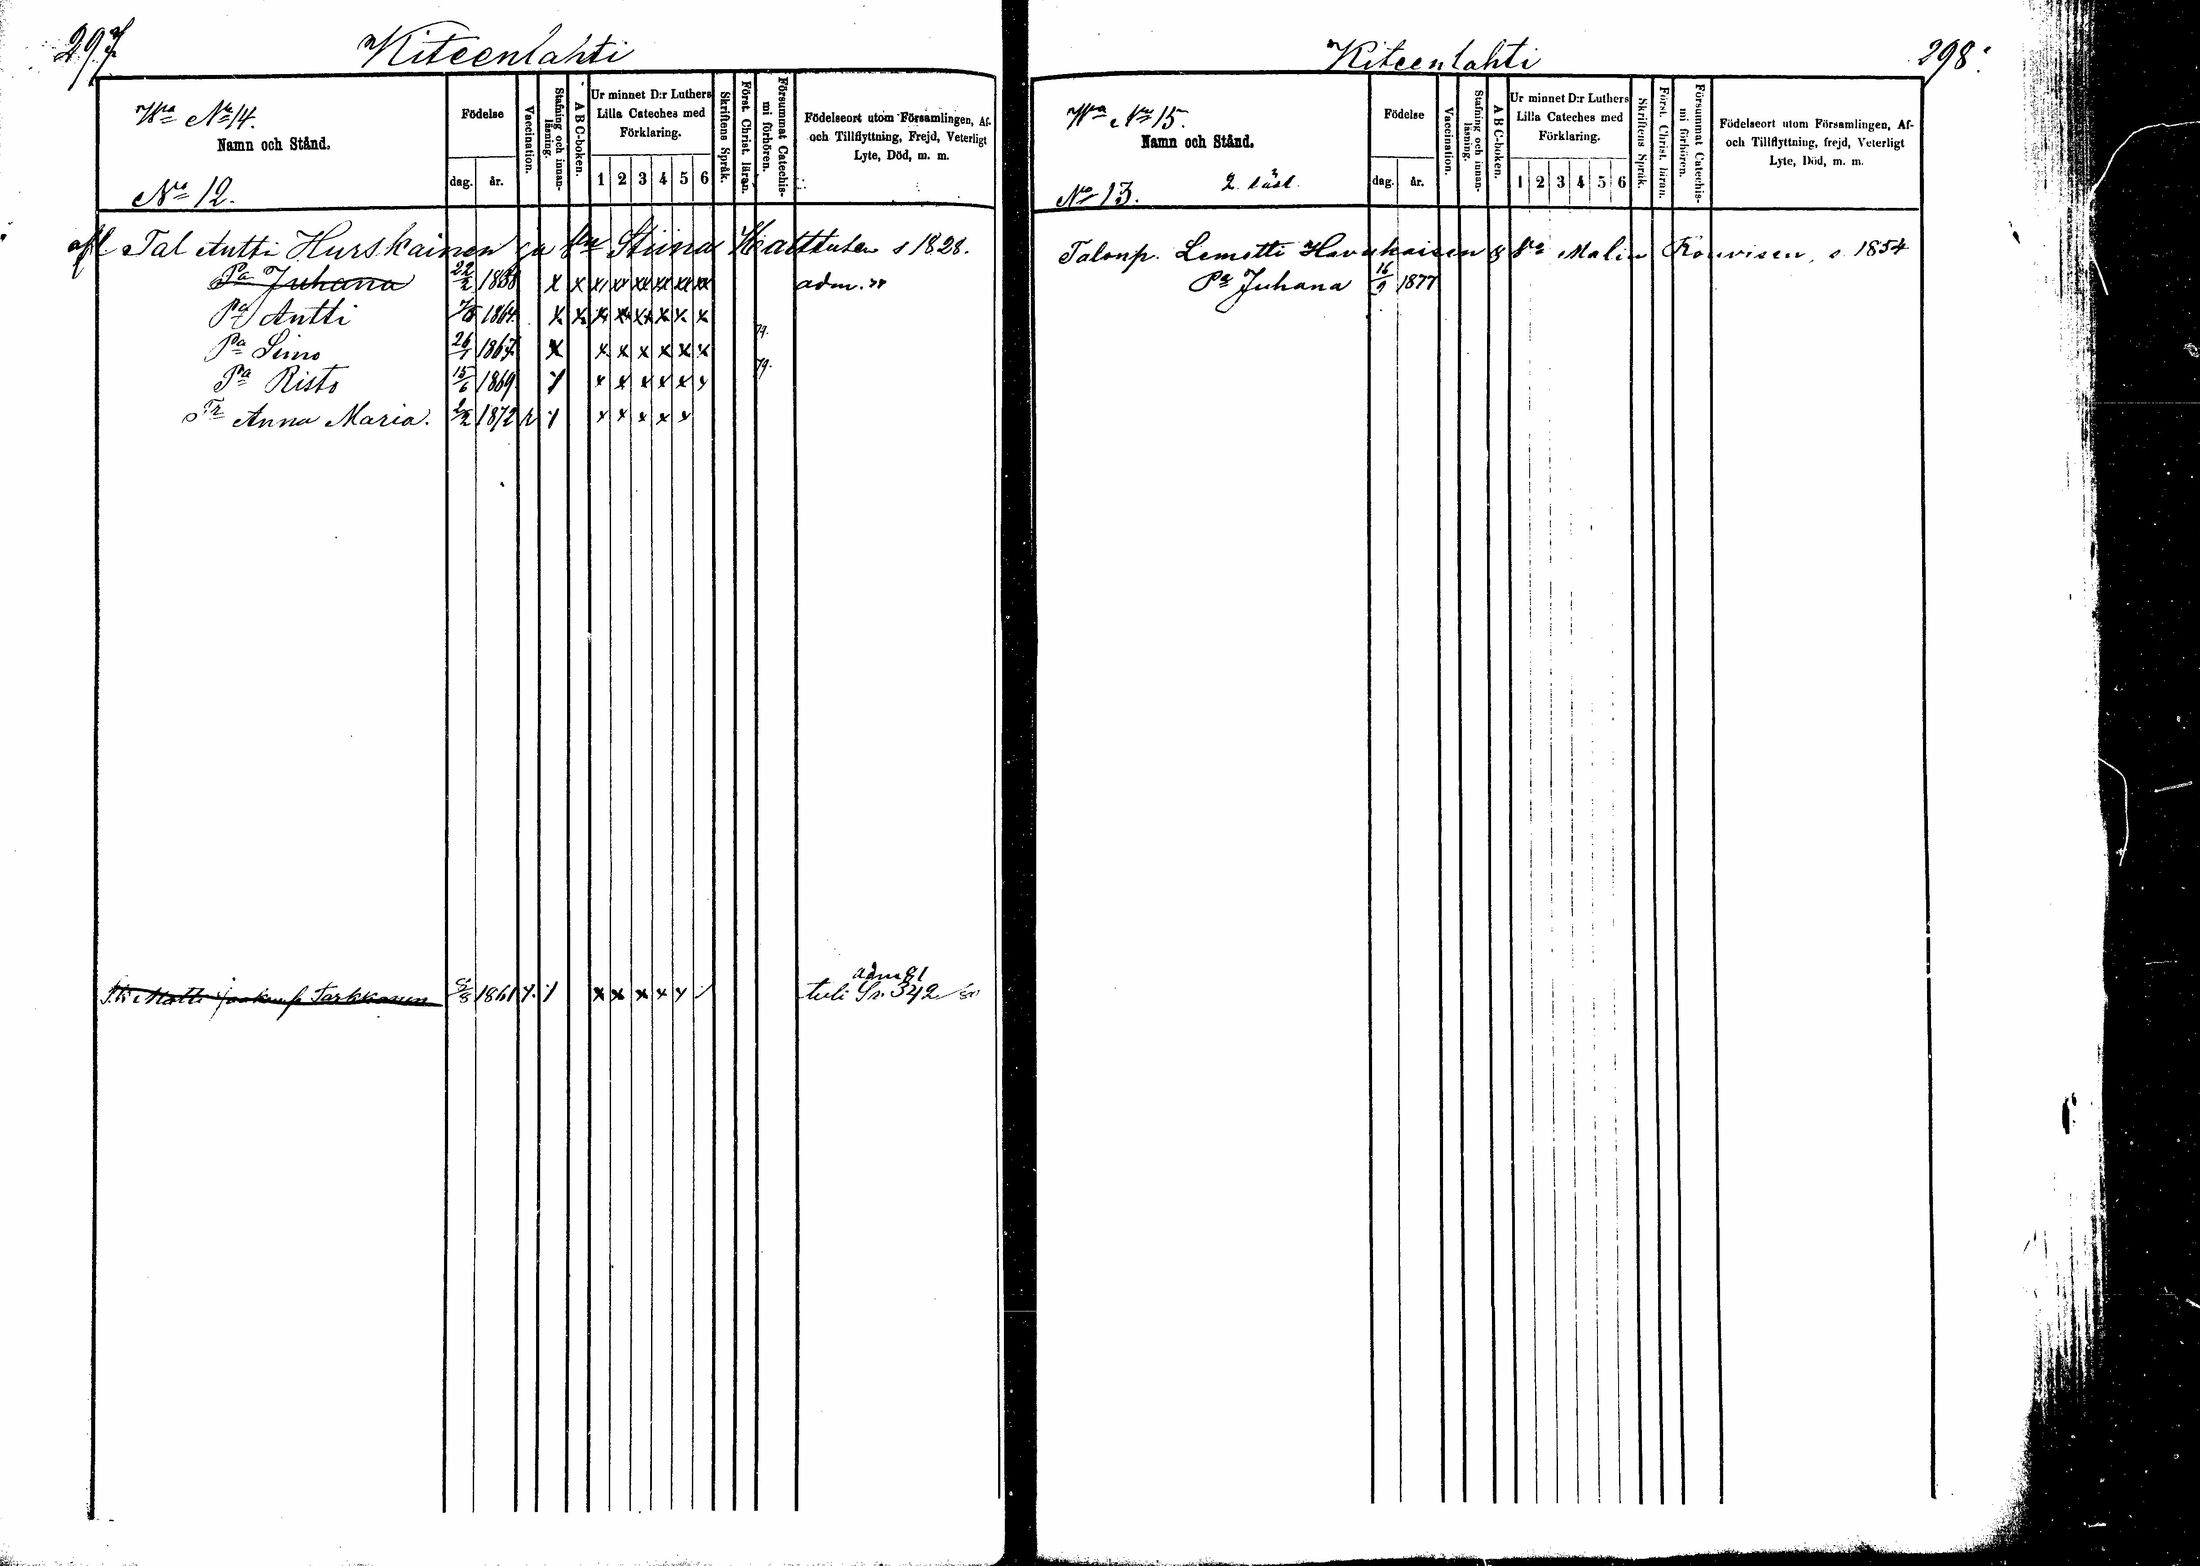 297.
Kiteenlahti
Wa No 14.
Namn och Stånd.
No 12.
Födelse
dag. år.
Vaccination.
Stafning och innanläsning.
A B C-boken.
Ur minnet D:r Luthers Lilla Cateches med Förklaring.
1 2 3 4 5 6
Skriftens Språk.
Först. Christ. läran.
Försummat Catechismi förhören.
Födelseort utom Församlingen, Af- och Tillflyttning, Frejd, Veterligt Lyte, Död, m. m.
Tal Antti Hurskainen ja Stiina s 1828.
Pa Juhana 22/2 1858 x x x x x x x x adm.
Pa Antti 1864 x x x x x x x x
Pa Simo 26/1 1867 x x x x x x x 79.
Pa Risto 15/6 1869 x x x x x x 79.
Tr Anna Maria. 1872 x x x x x
Matti Tarkkonen 1861 x x x x adm 81
tuli Sr. 342
298.
Kiteenlahti
Wa No 15.
Namn och Stånd.
No 13.
Födelse
dag. år.
Vaccination.
Stafning och innanläsning.
A B C-boken.
Ur minnet D:r Luthers Lilla Cateches med Förklaring.
1 2 3 4 5 6
Skriftens Språk.
Först. Christ. läran.
Försummat Catechismi förhören.
Födelseort utom Församlingen, Af- och Tillflyttning, frejd, Veterligt Lyte, Död, m. m.
Talonp. Malin s. 1854
Pa Juhana 16/9 1877